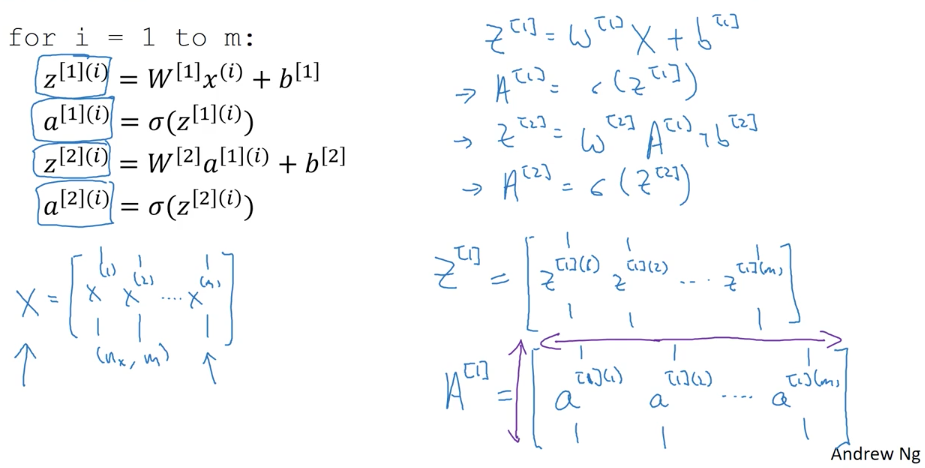 for i = 1 to m:
z^{[1](i)} = W^{[1]}x^{(i)} + b^{[1]}
a^{[1](i)} = σ(z^{[1](i)})
z^{[2](i)} = W^{[2]}a^{[1](i)} + b^{[2]}
a^{[2](i)} = σ(z^{[2](i)})
X = [ x^{(1)} x^{(2)} .... x^{(m)} ]
(n_x, m)
Z^{[1]} = W^{[1]} X + b^{[1]}
→ A^{[1]} = σ(Z^{[1]})
→ Z^{[2]} = W^{[2]} A^{[1]} + b^{[2]}
→ A^{[2]} = σ(Z^{[2]})
Z^{[1]} = [ z^{[1](1)} z^{[1](2)} ... z^{[1](m)} ]
A^{[1]} = [ a^{[1](1)} a^{[1](2)} .... a^{[1](m)} ]
Andrew Ng